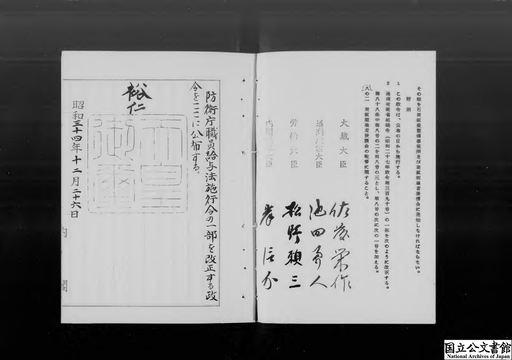 附則
1 この政令は、公布の日から施行する。
2 通商産業省組織令(昭和二十七年政令第三百九十号)の一部を次のように改正する。
大蔵大臣 佐藤栄作
通商産業大臣 池田勇人
労働大臣 松野頼三
内閣総理大臣 岸信介
防衛庁職員給与法施行令の一部を改正する政
令をここに公布する。
裕仁
天皇
御璽
昭和三十四年十二月二十六日
内閣
国立公文書館
National Archives of Japan